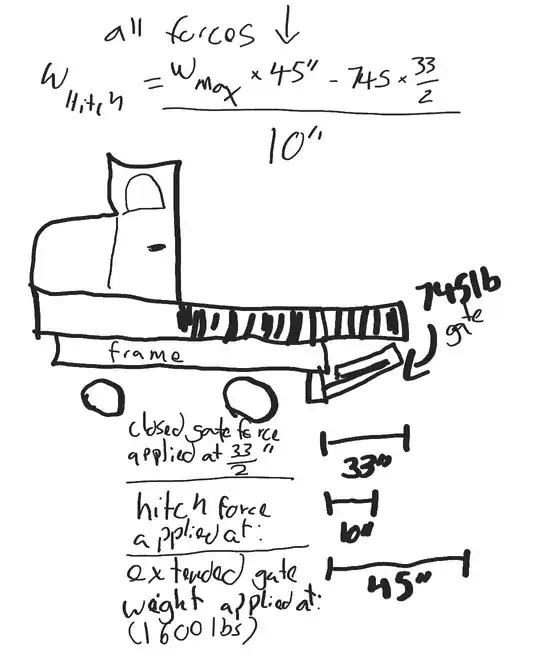 all forces ↓
W Hitch = Wmax × 45" - 745 × 33/2
10"
745lb
gate
frame
closed gate force
applied at 33/2 "
33"
hitch force
applied at:
10"
extended gate
weight applied at:
(1600lbs)
45"